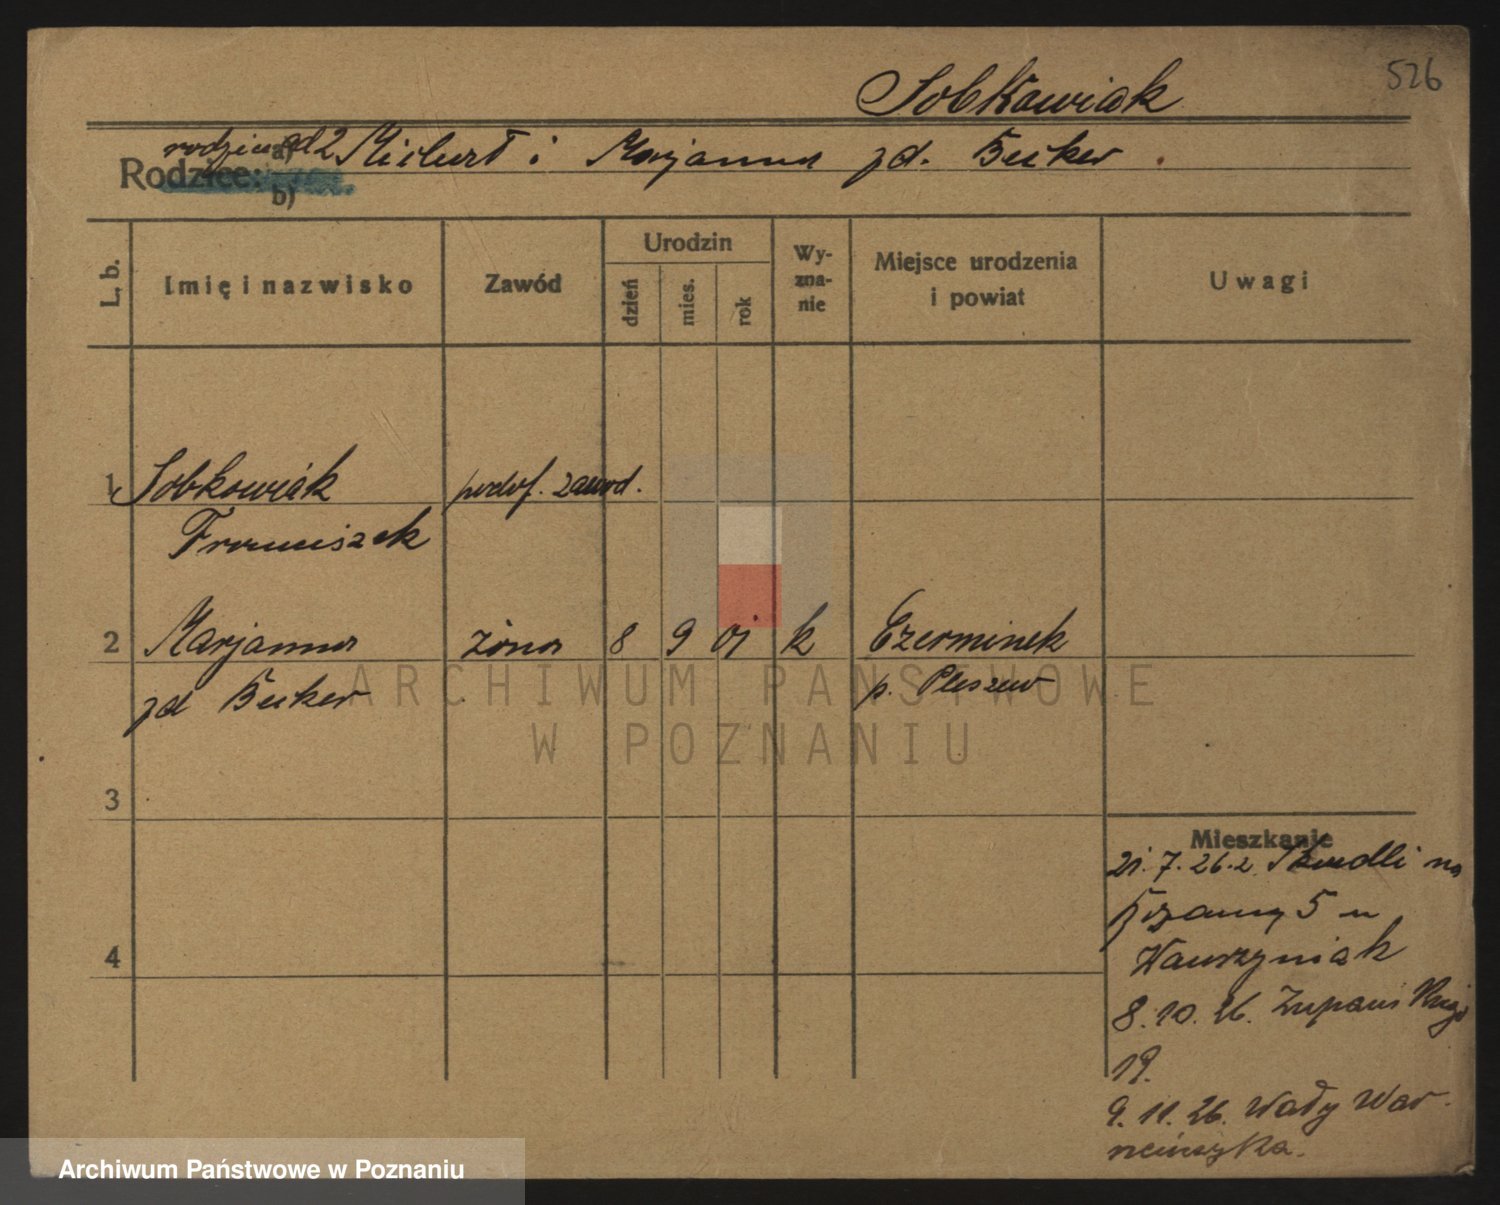 526
Sobkowiak
rodzice ad 2 Michał i Marjanna zd. Becker
Rodzice: a)
b)
L. b.
Imię i nazwisko
Zawód
Urodzin
dzień
mies.
rok
Wy-
zna-
nie
Miejsce urodzenia
i powiat
Uwagi
1 Sobkowiak podof. zawod.
Franciszek
2 Marjanna żona 8 9 01 k Czerminek
zd Becker p. Pleszew
ARCHIWUM PAŃSTWOWE
W POZNANIU
3
4
Mieszkanie
21. 7. 26. z
5 u
Wawrzyniak
8. 10. 26. Żupańskiego
19.
9. 11. 26. Wały War-
neńczyka.
Archiwum Państwowe w Poznaniu